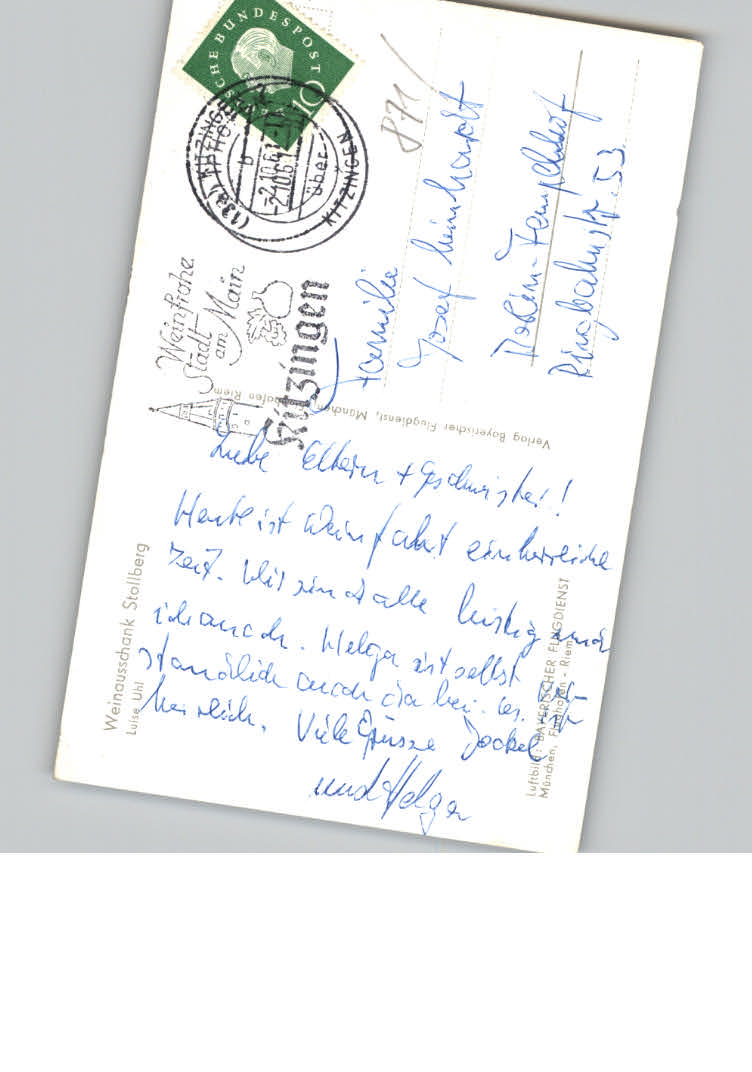 DEUTSCHE BUNDESPOST
10
KITZINGEN
b
-2.10.61
über
KITZINGEN
871/
Weinfrohe
Stadt
am Main
Kitzingen
Familie
Josef
Berlin-Tempelhof
Ringbahnstr. 53
Verlag Bayerischer Flugdienst, München, Flughafen Riem
Liebe Eltern + Geschwister!
Heute ist Weinfahrt eine herrliche
Zeit. Wir sind alle lustig und
ich auch. Helga ist selbst
ständlich auch da bei. Es ist
herrlich. Viele Grüsse Jockel
und Helga
Weinausschank Stollberg
Luise Uhl
Luftbild: BAYERISCHER FLUGDIENST
München, Flughafen - Riem